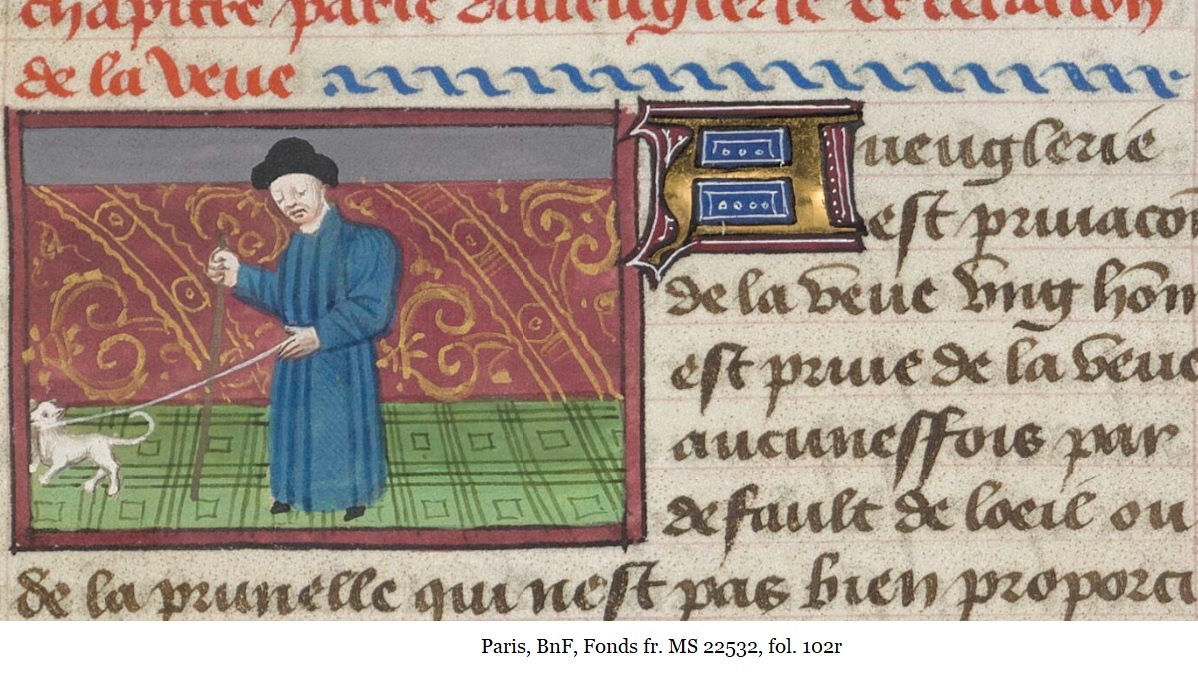 chapitre parle daueuglerie et celacion
de la veue
Aueuglerie
est priuacōn
de la veue vng hōm
est priue de la veue
aucuneffois par
default de loeil ou
de la prunelle qui nest pas bien proporci
Paris, BnF, Fonds fr. MS 22532, fol. 102r